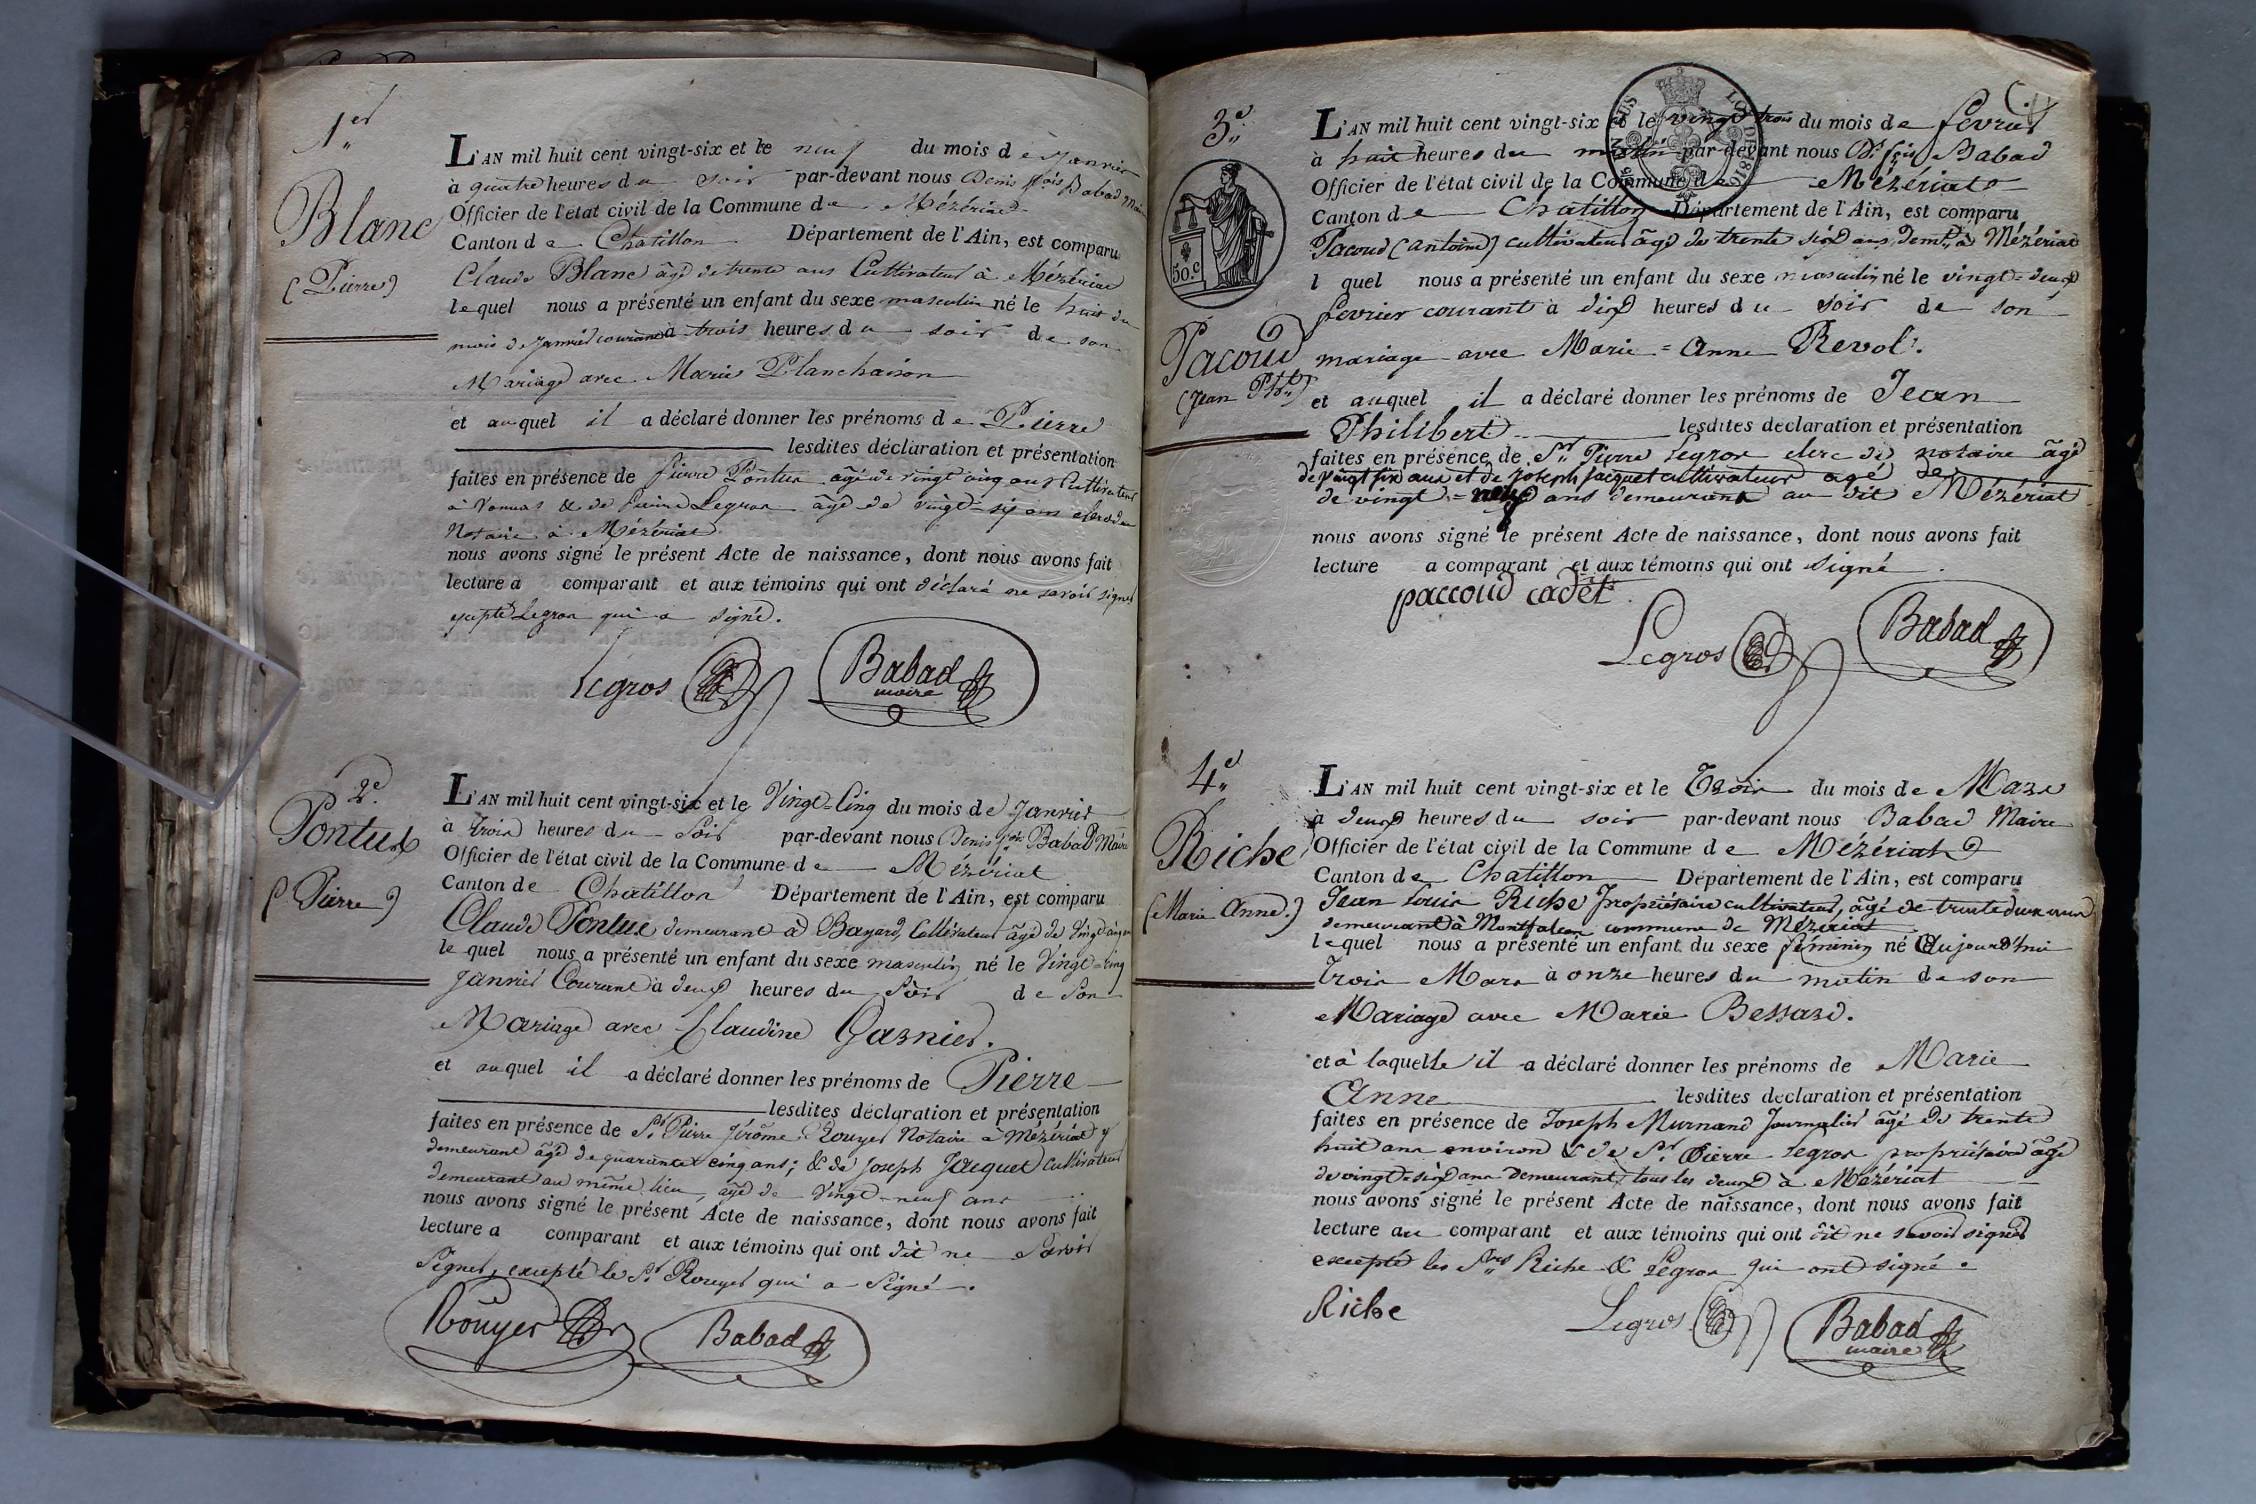 1er
Blanc
(Pierre)
L'AN mil huit cent vingt-six et le neuf du mois de Janvier
à quatre heures du soir par-devant nous Denis fçois Babad Maire
Officier de l'état civil de la Commune de Mézériat
Canton de Chatillon Département de l'Ain, est comparu
Claude Blanc âgé de trente ans Cultivateur à Mézériat
lequel nous a présenté un enfant du sexe masculin né le huit du
mois de Janvier courant à trois heures du soir de son
Mariage avec Marie Planchaison
et auquel il a déclaré donner les prénoms de Pierre
lesdites déclaration et présentation
faites en présence de pierre Pontux âgé de vingt cinq ans Cultivateur
à Vonnas & de pierre Legros âgé de vingt-six ans clerc de
Notaire à Mézériat
nous avons signé le présent Acte de naissance, dont nous avons fait
lecture a comparant et aux témoins qui ont déclaré ne savoir signer
excepté Legros qui a signé.
Legros Babad
maire
2e.
Pontux
(Pierre)
L'AN mil huit cent vingt-six et le Vingt=Cinq du mois de Janvier
à trois heures du Soir par-devant nous Denis fçois Babad Maire
Officier de l'état civil de la Commune de Mézériat
Canton de Chatillon Département de l'Ain, est comparu
Claude Pontux demeurant à Bayard, Cultivateur âgé de Vingt cinq ans
le quel nous a présenté un enfant du sexe masculin né le Vingt=cinq
Janvier Courant à deux heures du Soir de Son
Mariage avec Claudine Garnier.
et auquel il a déclaré donner les prénoms de Pierre
lesdites déclaration et présentation
faites en présence de Sr. Pierre Jérôme Rouyer Notaire à Mézériat y
demeurant âgé de quarante cinq ans; & de Joseph Jacquet cultivateur
demeurant au même lieu, âgé de Vingt-neuf ans
nous avons signé le présent Acte de naissance, dont nous avons fait
lecture a comparant et aux témoins qui ont dit ne Savoir
Signer, excepté le Sr. Rouyer qui a Signé.
Rouyer Babad
3e.
50.c
Pacoud
(Jean Phbt)
L'AN mil huit cent vingt-six et le vingt trois du mois de fevrier
à huit heures du matin par-devant nous Ds. fçois Babad
Officier de l'état civil de la Commune de Mézériat
Canton de Chatillon Département de l'Ain, est comparu
Pacoud (Antoine) cultivateur âgé de trente six ans, demt. à Mézériat
l quel nous a présenté un enfant du sexe masculin né le vingt=deux
fevrier courant à dix heures du soir de son
mariage avec Marie=Anne Revol.
et auquel il a déclaré donner les prénoms de Jean
Philibert lesdites declaration et présentation
faites en présence de Sr. Pierre Legros clerc de notaire âgé
de vingt six ans et de Joseph Jacquet cultivateur agé de
de vingt=neuf ans demeurant au dit Mézériat
nous avons signé le présent Acte de naissance, dont nous avons fait
lecture a comparant et aux témoins qui ont signé.
paccoud cadet
Legros Babad
4e.
Riche
(Marie Anne.)
L'AN mil huit cent vingt-six et le Trois du mois de Mars
à deux heures du soir par-devant nous Babad Maire
Officier de l'état civil de la Commune de Mézériat
Canton de Chatillon Département de l'Ain, est comparu
Jean Louis Riche Propriétaire cultivateur, âgé de trente deux ans
demeurant à Montfalcon commune de Mézériat
lequel nous a présenté un enfant du sexe féminin né Aujourd'hui
trois Mars à onze heures du matin de son
Mariage avec Marie Bessard.
et à laquelle il a déclaré donner les prénoms de Marie
Anne lesdites declaration et présentation
faites en présence de Joseph Murnand Journalier âgé de trente
huit ans environ & de Sr. Pierre Legros propriétaire âgé
de vingt=six ans demeurant tous les deux à Mézériat
nous avons signé le présent Acte de naissance, dont nous avons fait
lecture au comparant et aux témoins qui ont dit ne savoir signer
excepté les Srs Riche & Legros qui ont signé.
Riche Legros Babad
maire